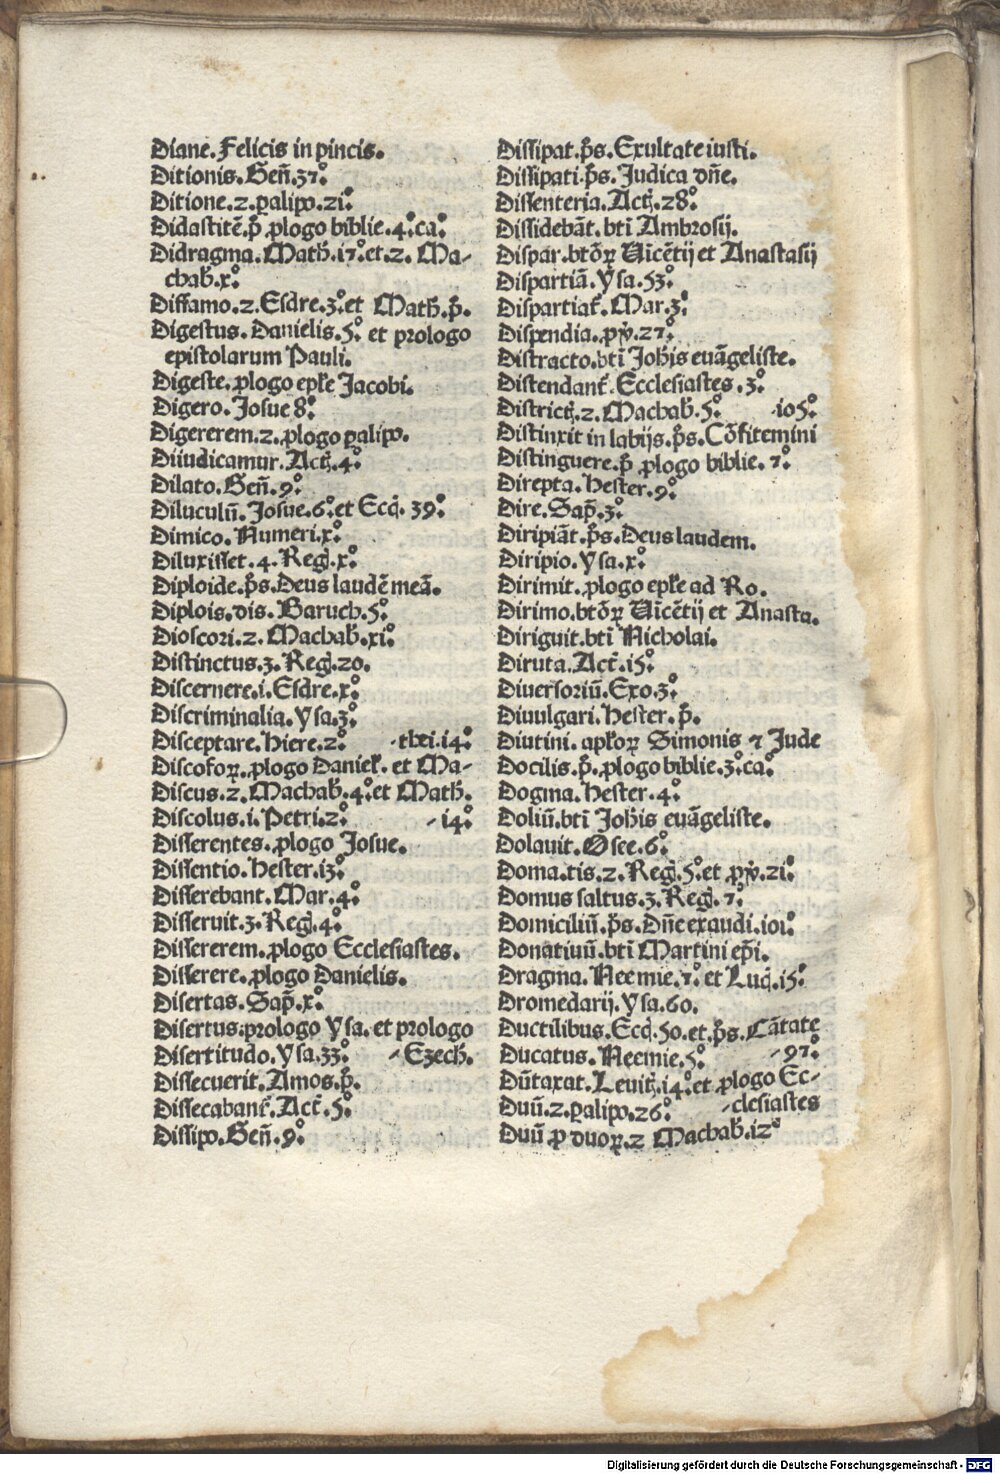 Diane. Felicis in pincis.
Ditionis. Gen̄. 37°.
Ditione. 2. palipo. 21°.
Didastitē. p̄. ꝓlogo biblie. 4°. ca°.
Didragma. Math̄. 17°. et. 2. Ma-
chab̄. x°.
Diffamo. 2. Esdre. 3°. et Math̄. p̄.
Digestus. Danielis. 5°. et prologo
epistolarum Pauli.
Digeste. ꝓlogo epl̄e Jacobi.
Digero. Josue 8°.
Digererem. 2. ꝓlogo palipo.
Diiudicamur. Actꝫ. 4°.
Dilato. Gen̄. 9°.
Diluculū. Josue. 6°. et Eccl̄. 39°.
Dimico. Numeri. x°.
Diluxisset. 4. Reḡ. x°.
Diploide. p̄s. Deus laudē meā.
Diplois. dis. Baruch. 5°.
Dioscori. 2. Machab̄. xi°.
Distinctus. 3. Reḡ. 20.
Discernere. i. Esdre. x°.
Discriminalia. Ysa. 3°.
Disceptare. Hiere. 2°. -thei. 14°.
Discoforꝝ. ꝓlogo Daniel̄. et Ma-
Discus. 2. Machab̄. 4°. et Math̄.
Discolus. i. Petri. 2°. - 14°.
Disserentes. ꝓlogo Josue.
Dissentio. Hester. 13°.
Disserebant. Mar. 4°.
Disseruit. 3. Reḡ. 4°.
Dissererem. ꝓlogo Ecclesiastes.
Disserere. ꝓlogo Danielis.
Disertas. Sap̄. x°.
Disertus. prologo Ysa. et prologo
Disertitudo. Ysa. 33°. - Ezech̄.
Dissecuerit. Amos. p̄.
Dissecabant̄. Act̄. 5°.
Dissipo. Gen̄. 9°.
Dissipat. p̄s. Exultate iusti.
Dissipati. p̄s. Judica dn̄e.
Dissenteria. Actꝫ. 28°.
Dissidebāt. bt̄i Ambrosij.
Dispar. btōꝝ Vicētij et Anastasij
Dispartiā. Ysa. 53°.
Dispartiat̄. Mar. 3°.
Dispendia. ꝓv̄. 27°.
Distracto. bt̄i Joh̄is euāgeliste.
Distendant̄. Ecclesiastes. 3°.
Districtꝫ. 2. Machab̄. 5°. -105°.
Distinxit in labijs. p̄s. Cōfitemini
Distinguere. p̄. ꝓlogo biblie. 7°.
Direpta. Hester. 9°.
Dire. Sap̄. 3°.
Diripiāt. p̄s. Deus laudem.
Diripio. Ysa. x°.
Dirimit. ꝓlogo epl̄e ad Ro.
Dirimo. btōꝝ Vicētij et Anasta.
Diriguit. bt̄i Nicholai.
Diruta. Act̄. 15°.
Diuersoriū. Exo. 3°.
Diuulgari. Hester. p̄.
Diutini. apl̄oꝝ Simonis ⁊ Jude
Docilis. p̄. ꝓlogo biblie. 3°. ca°.
Dogma. Hester. 4°.
Doliū. bt̄i Joh̄is euāgeliste.
Dolauit. Osee. 6°.
Doma. tis. 2. Reḡ. 5°. et ꝓv̄. 21°.
Domus saltus. 3. Reḡ. 7°.
Domiciliū. p̄s. Dn̄e exaudi. 101°.
Donatiuū. bt̄i Martini ep̄i.
Dragma. Neemie. 7°. et Luc̄. 15°.
Dromedarij. Ysa. 60.
Ductilibus. Eccl̄. 50. et. p̄s. Cātate
Ducatus. Neemie. 5°. - 97°.
Dūtaxat. Leuitꝫ. 14°. et ꝓlogo Ec-
Duū. 2. palipo. 26°. -clesiastes
Duū ꝓ duoꝝ. 2 Machab̄. 12°
Digitalisierung gefördert durch die Deutsche Forschungsgemeinschaft - DFG